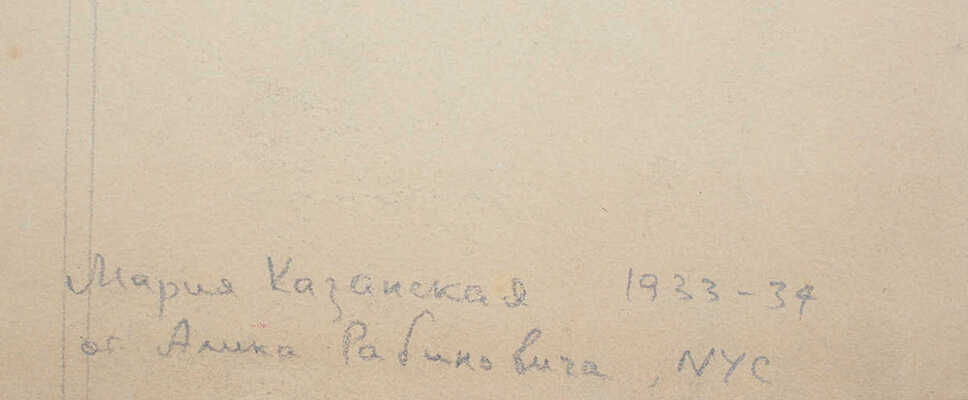 Мария Казанская 1933-34
от Алика Рабиновича, NYC